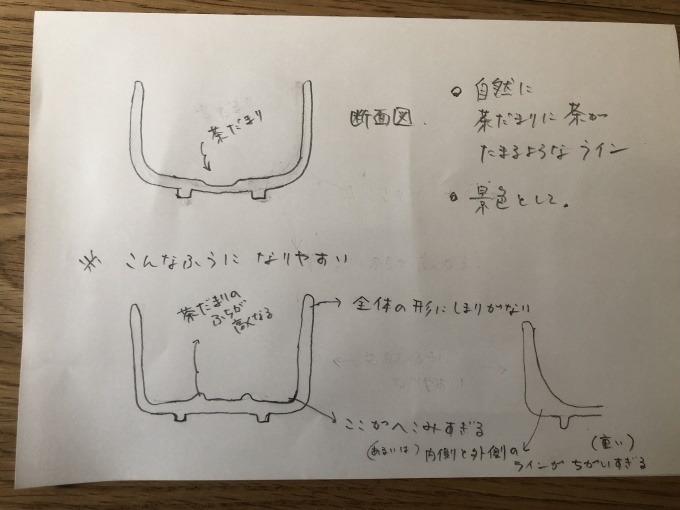 茶だまり
断面図.
○ 自然に
茶だまりに茶が
たまるようなライン
○ 景色として。
※ こんなふうに なりやすい
茶だまりの
ふちが
高くなる
全体の形にしまりがない
ここがへこみすぎる
(あるいは) 内側と外側の
ラインが ちがいすぎる
(重い)